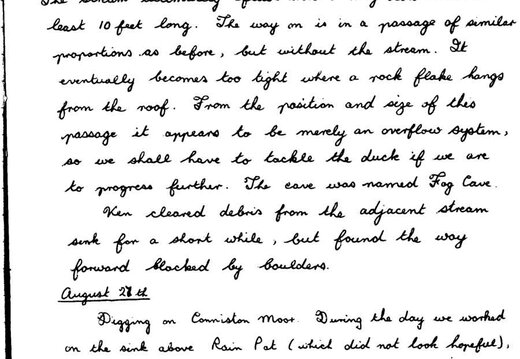 least 10 feet long. The way on is in a passage of similar
proportions as before, but without the stream. It
eventually becomes too tight where a rock flake hangs
from the roof. From the position and size of this
passage it appears to be merely an overflow system,
so we shall have to tackle the duck if we are
to progress further. The cave was named Fog Cave.
Ken cleared debris from the adjacent stream
sink for a short while, but found the way
forward blocked by boulders.
August 27th
Digging on Conniston Moor. During the day we worked
on the sink above Rain Pot (which did not look hopeful),